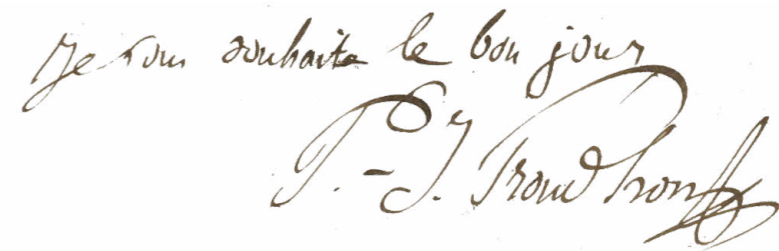 Je vous souhaite le bon jour
P.-J. Proudhon